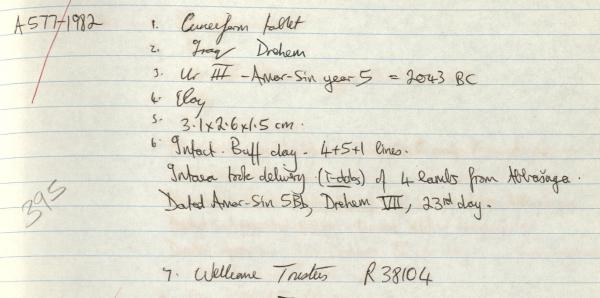 A577-1982
1. Cuneiform tablet
2. Iraq Drehem
3. Ur III - Amar-Sin year 5 = 2043 BC
4. Clay
5. 3.1x2.6x1.5 cm.
6. Intact. Buff clay. 4+5+1 lines.
Intaea took delivery (ì-dab5) of 4 lambs from Abbašaga.
Dated Amar-Sin 5Bb, Drehem VII, 23rd day.
395
7. Wellcome Trustees R38104